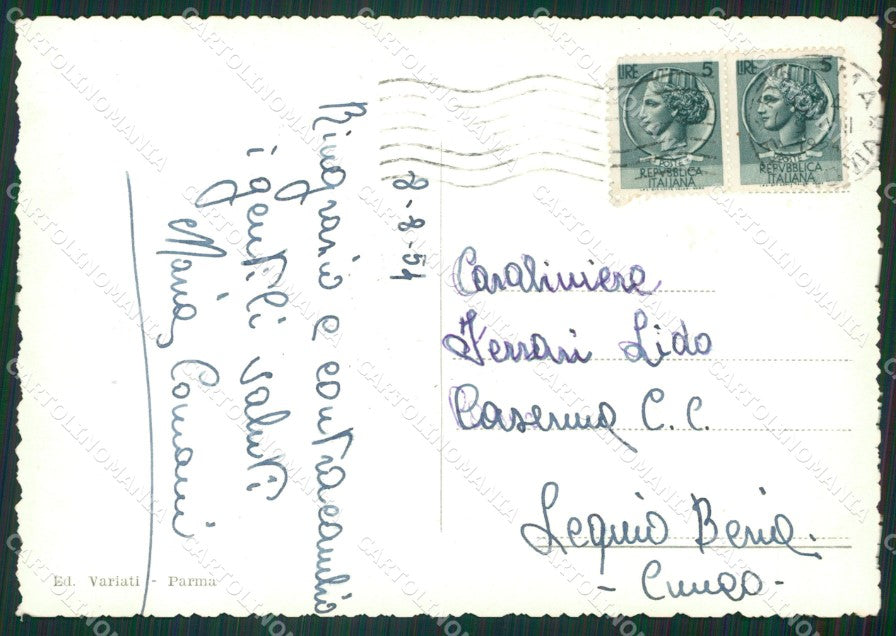 8-8-54
Ringrazio e contracambio
i gentili saluti
Maria Comani
LIRE 5
POSTE
REPVBBLICA
ITALIANA
LIRE 5
POSTE
REPVBBLICA
ITALIANA
Carabiniere
Ferrari Lido
Caserma C. C.
Lequio Beria
- Cuneo -
Ed. Variati - Parma
CARTOLINOMANIA